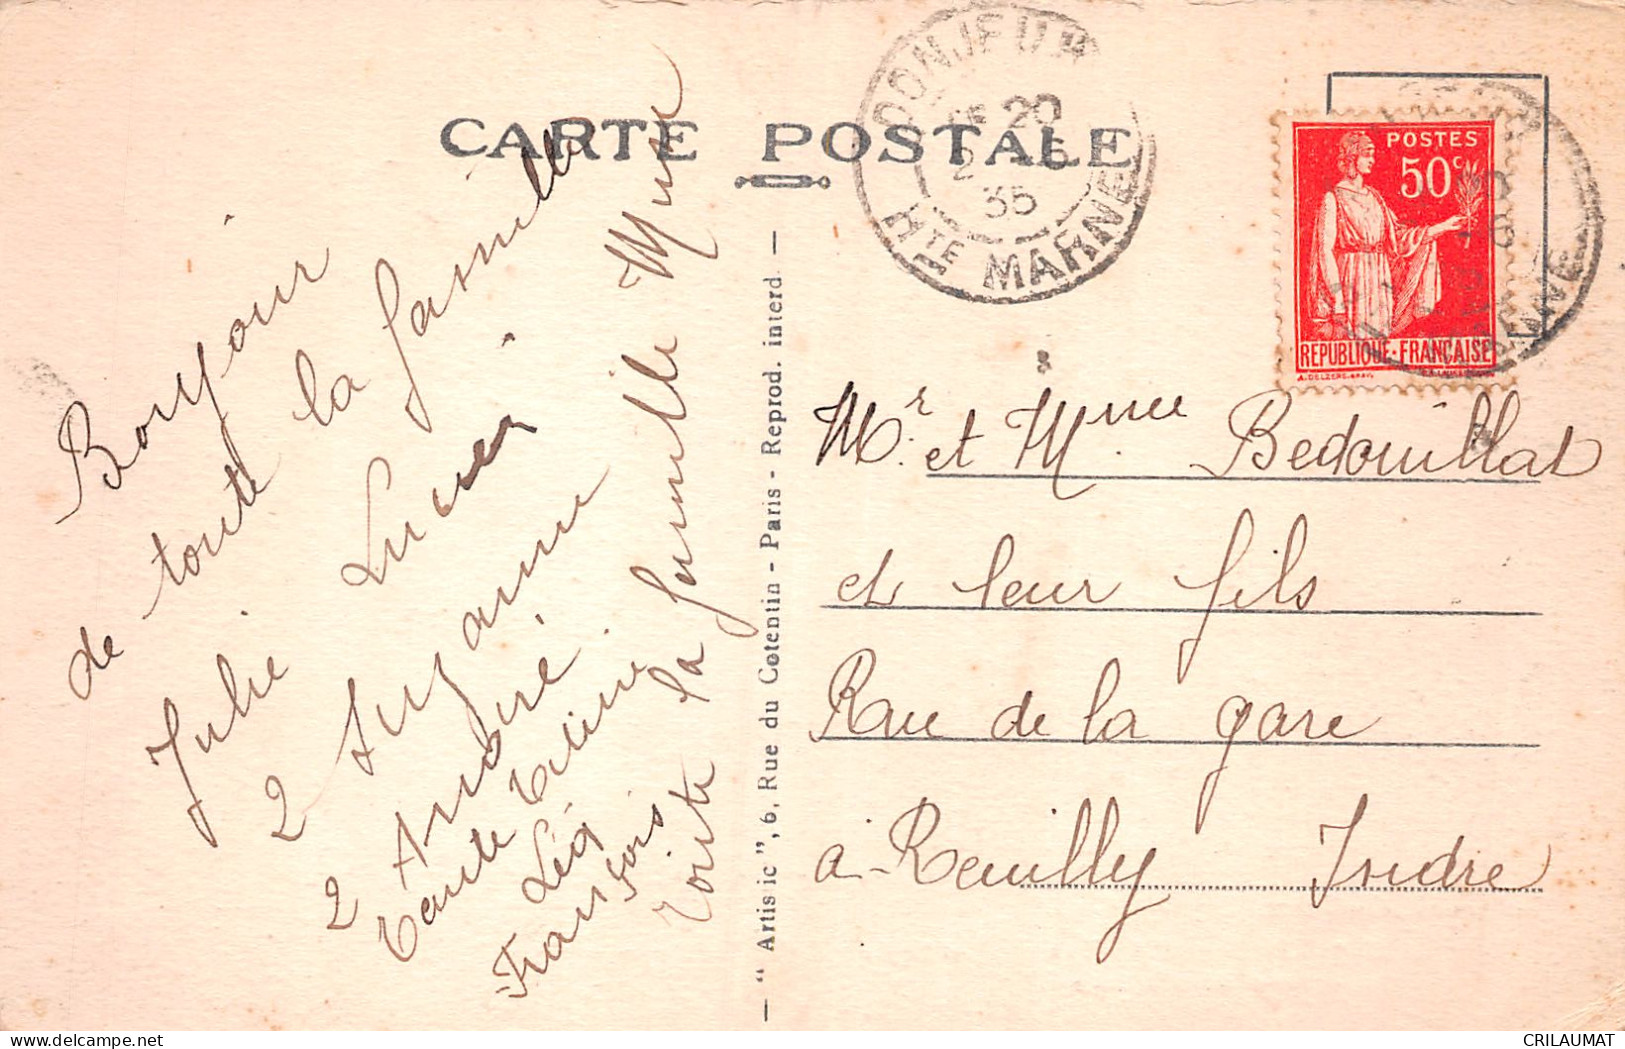 CARTE POSTALE
DONJEUX
20
2 -5
35
Hte MARNE
POSTES
50c
REPUBLIQUE-FRANÇAISE
Bonjour
de toute la famille
Julie Lucien
2 Suzanne
2 André
Tante
Léa
François
toute la famille
Mr. et Mme Bedouillat
et leur fils
Rue de la gare
à-Reuilly Indre
— “ Artistic ”, 6, Rue du Cotentin - Paris - Reprod. interd —
CRILAUMAT